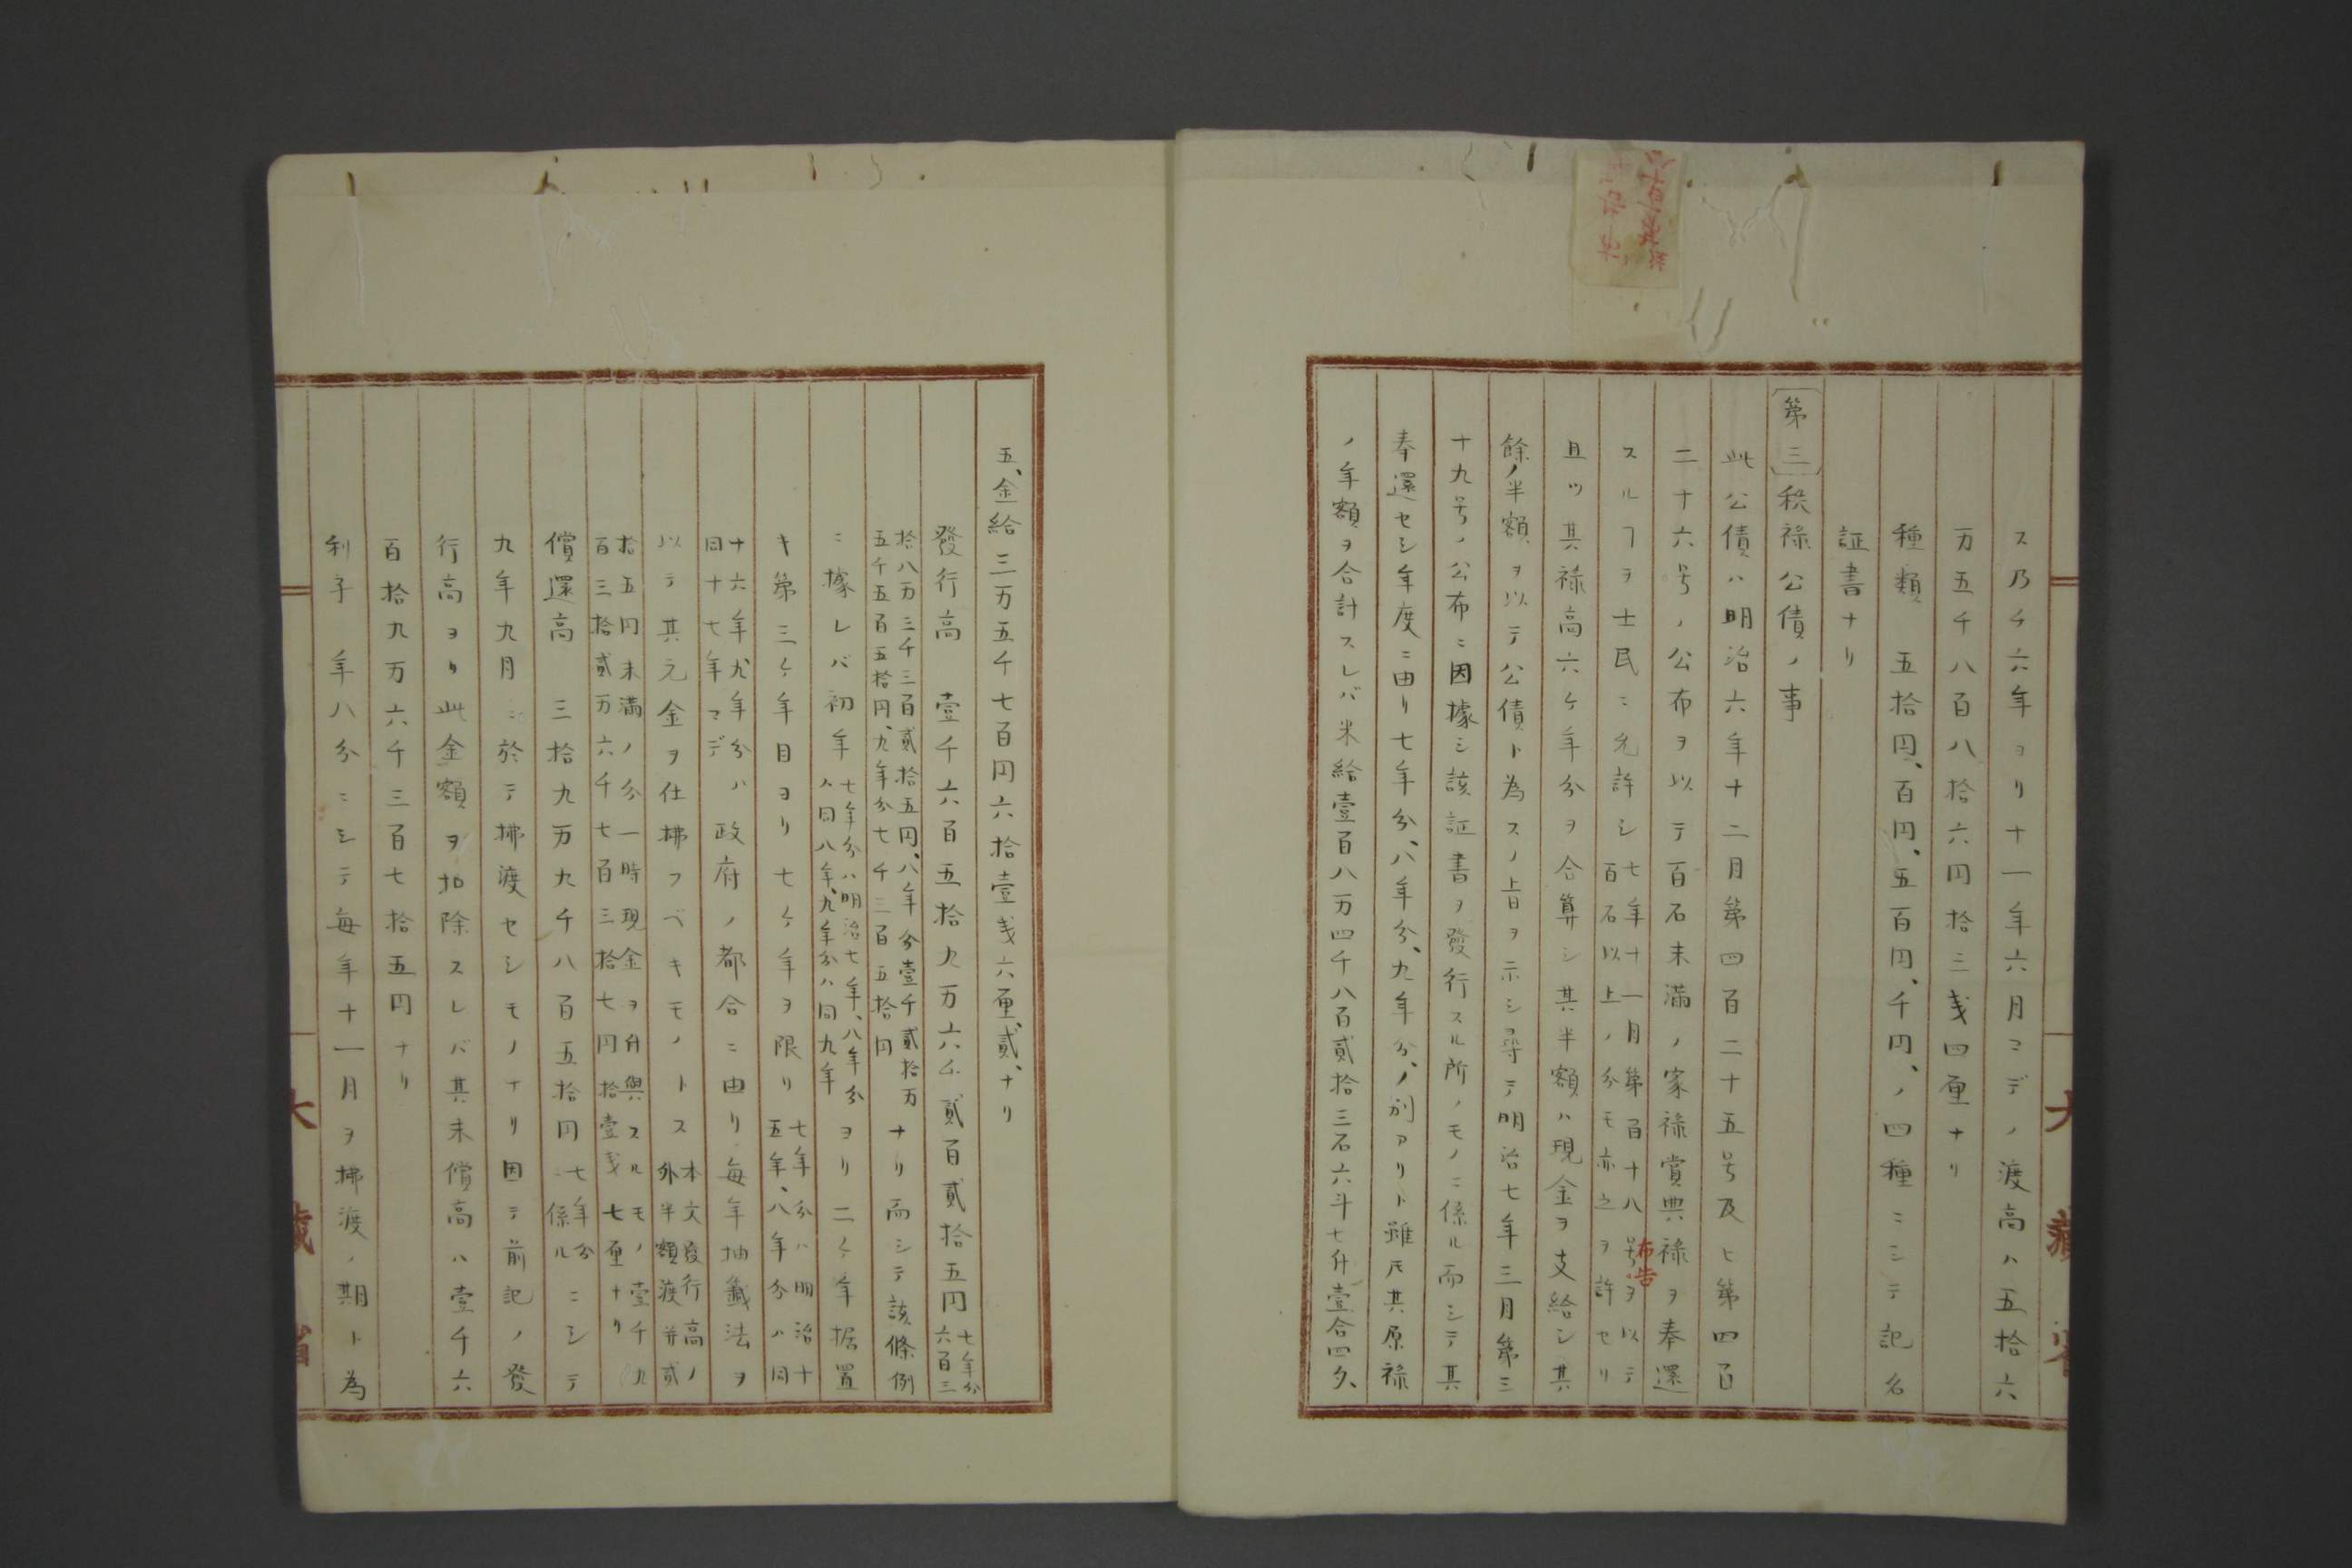 ス乃チ六年ヨリ十一年六月マデノ渡高ハ五拾六
万五千八百八拾六円拾三戋四厘ナリ
種類　五拾円、百円、五百円、千円、ノ四種ニシテ記名
証書ナリ
〔第三〕秩禄公債ノ事
此公債ハ明治六年十二月第四百二十五号及ヒ第四百
二十六号ノ公布ヲ以テ百石未満ノ家禄賞典禄ヲ奉還
スルヿヲ士民ニ允許シ七年十一月第百十八号布告ヲ以テ
百石以上ノ分モ亦之ヲ許セリ
且ツ其禄高六ケ年分ヲ合算シ其半額ハ現金ヲ支給シ其
餘ノ半額ヲ以テ公債ト為スノ旨ヲ示シ尋テ明治七年三月第三
十九号ノ公布ニ因據シ該証書ヲ發行スル所ノモノニ係ル而シテ其
奉還セシ年度ニ由リ七年分、八年分、九年分、ノ別アリト雖𪜈其原禄
ノ年額ヲ合計スレバ米給壹百八万四千八百貳拾三石六斗七升壹合四夕、
五、金給三万五千七百円六拾壹戋六厘、貳、ナリ
發行高　壹千六百五拾九万六千貳百貳拾五円七年分
六百三
拾八万三千三百貳拾五円、八年分壹千貳拾万
五千五百五拾円、九年分七千三百五拾円
ナリ而シテ該條例
ニ據レバ初年七年分ハ明治七年、八年分
ハ同八年、九年分ハ同九年
ヨリ二ケ年据置
キ第三ケ年目ヨリ七ケ年ヲ限リ七年分ハ明治十
五年、八年分ハ同
十六年九年分ハ
同十七年マデ
政府ノ都合ニ由リ毎年抽籤法ヲ
以テ其元金ヲ仕拂フベキモノトス本文發行高ノ
外半額渡并貳
拾五円未満ノ分一時現金ヲ付與スルモノ壹千九
百三拾貳万六千七百三拾七円拾壹戋七厘ナリ
償還高　三拾九万九千八百五拾円七年分
係ル
ニシテ
九年九月ニ於テ拂渡セシモノナリ因テ前記ノ發
行高ヨリ此金額ヲ扣除スレバ其未償高ハ壹千六
百拾九万六千三百七拾五円ナリ
利子　年八分ニシテ毎年十一月ヲ拂渡ノ期ト為
大藏省